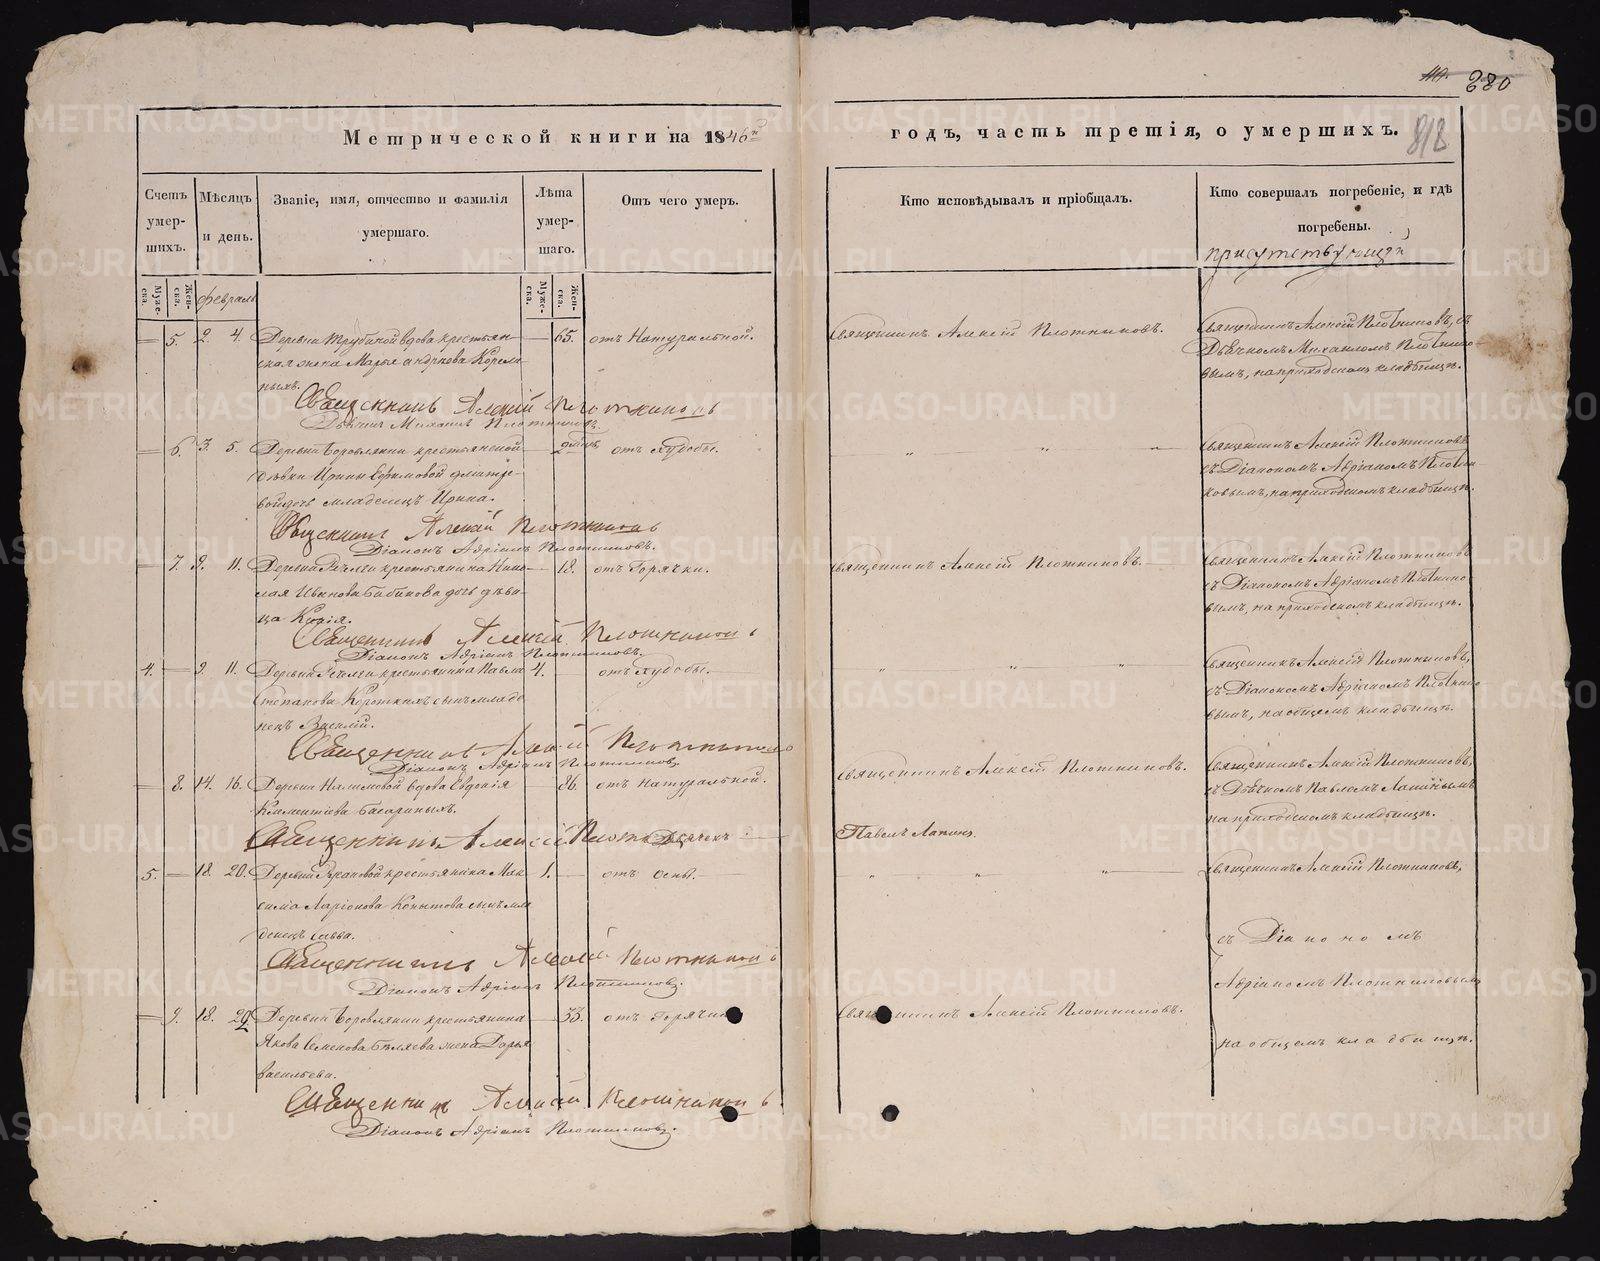 280
818
Метрической книги на 1846й
годъ, часть третія, о умершихъ.
Счетъ умер-шихъ.
Мѣсяцъ и день.
Званіе, имя, отчество и фамилія умершаго.
Лѣта умер-шаго.
Отъ чего умеръ.
Кто исповѣдывалъ и пріобщалъ.
Кто совершалъ погребеніе, и гдѣ погребены.
присутствующій
Муже-ска.
Жен-ска.
февраль
Муже-ска.
Жен-ска.
5. 2. 4. Деревни Трубиной вдова крестьян- 65. отъ Натуральной. Священникъ Алексій Плотниковъ. Священникъ Алексій Плотниковъ, съ
ская жена Марья Дьячкомъ Михаиломъ Плотнико-
ныхъ. вымъ, на приходскомъ кладбищѣ.
Священникъ Алексій Плотниковъ
Дьячекъ Михаилъ Плотниковъ.
6. 3. 5. Деревни Боровлянки крестьянской 2 отъ Худобы. Священникъ Алексій Плотниковъ
дѣвки Ирины Ефимовой съ Діакономъ Адріаномъ Плотни-
вой дочь младенецъ Ирина. ковымъ, на приходскомъ кладбищѣ.
Священникъ Алексій Плотниковъ
Діаконъ Адріанъ Плотниковъ.
7. 9. 11. Деревни крестьянина Нико- 18. отъ Горячки. Священникъ Алексій Плотниковъ. Священникъ Алексій Плотниковъ
лая Иванова Бабикова дочь дѣви- съ Діакономъ Адріаномъ Плотнико-
ца вымъ, на приходскомъ кладбищѣ.
Священникъ Алексій Плотниковъ
Діаконъ Адріанъ Плотниковъ.
4. 9. 11. Деревни крестьянина Павла 4. отъ Худобы. Священникъ Алексій Плотниковъ,
Степанова Короткихъ сынъ младе- съ Діакономъ Адріаномъ Плотнико-
нецъ Василій. вымъ, на общемъ кладбищѣ.
Священникъ Алексій Плотниковъ
Діаконъ Адріанъ Плотниковъ
8. 14. 16. Деревни Налимовой вдова Евдокія 86. отъ натуральной. Священникъ Алексій Плотниковъ. Священникъ Алексій Плотниковъ,
Климентіева съ Дьячкомъ Павломъ Лапинымъ
на приходскомъ кладбищѣ.
Священникъ Алексій Дьячекъ Павелъ Лапинъ
5. 18. 20. Деревни крестьянина Мак- 1. отъ оспы. Священникъ Алексій Плотниковъ,
сима Ларіонова Копытова сынъ мла
денецъ Савва. съ Діакономъ
Священникъ Алексій Плотниковъ
Діаконъ Адріанъ Плотниковъ. Адріаномъ Плотниковымъ
9. 18. Деревни Боровлянки крестьянина 33. отъ Горячки Священникъ Алексій Плотниковъ.
Якова Семенова Бѣляева жена Дарья на общемъ кладбищѣ.
Васильева.
Священникъ Алексій Плотниковъ
Діаконъ Адріанъ Плотниковъ.
METRIKI.GASO-URAL.RU